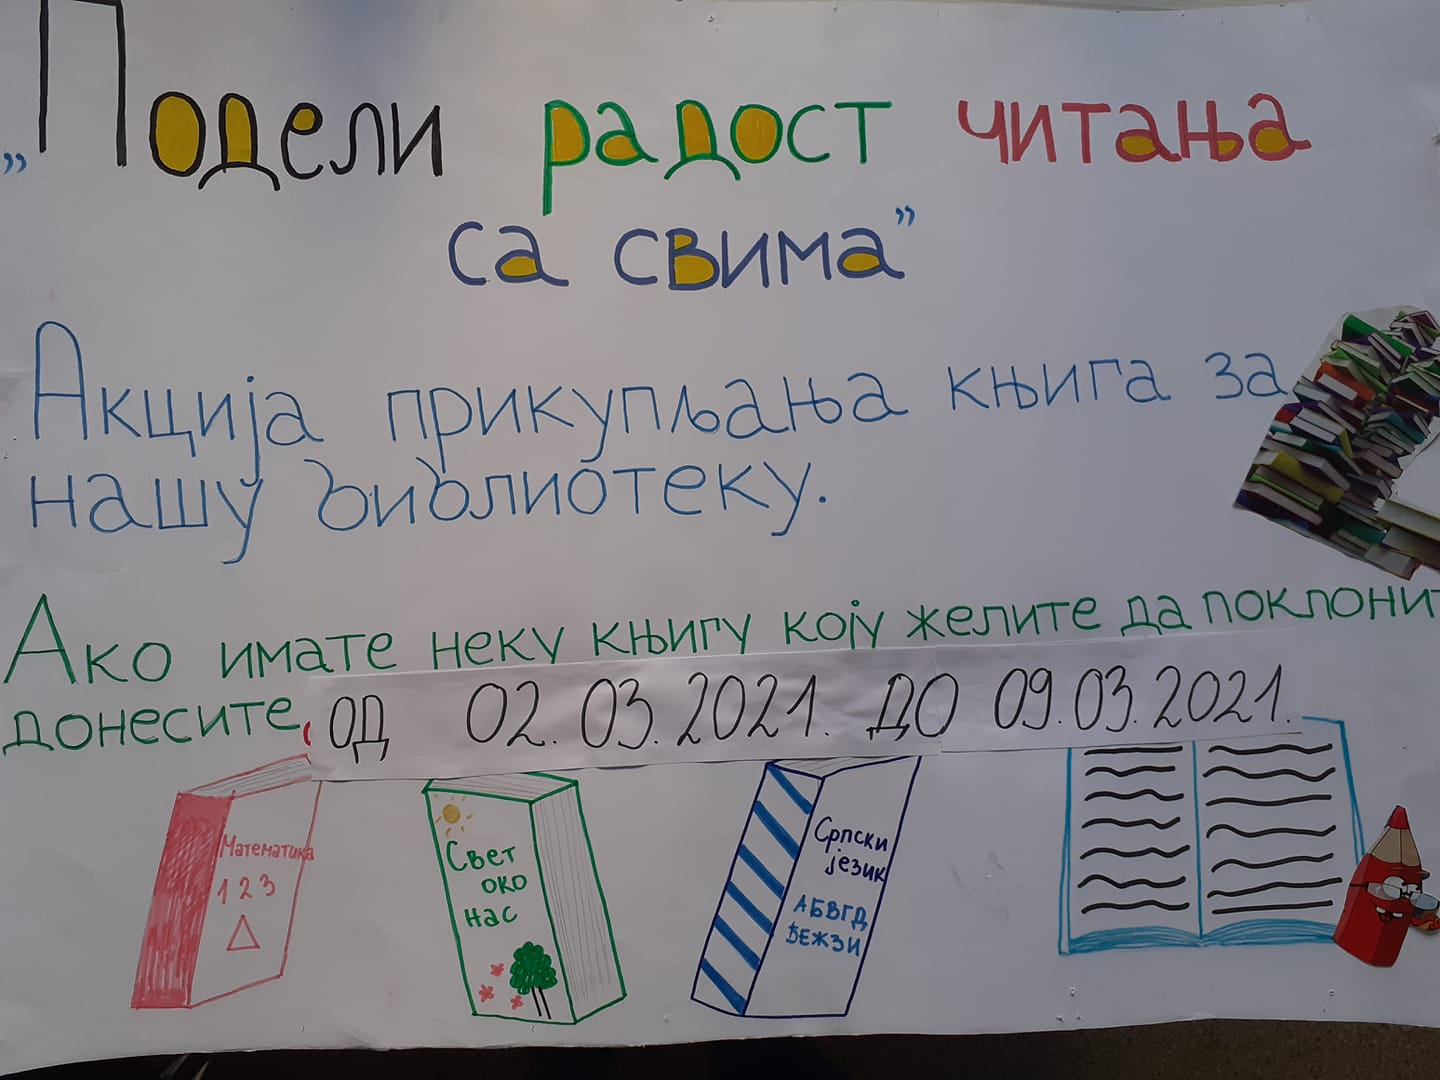 „Подели радост читања
са свима”
Акција прикупљања књига за
нашу библиотеку.
Ако имате неку књигу коју желите да поклонит
донесите од 02.03.2021. до 09.03.2021.
Математика
1 2 3
Свет
око
нас
Српски
језик
АБВГД
ЂЕЖЗИ